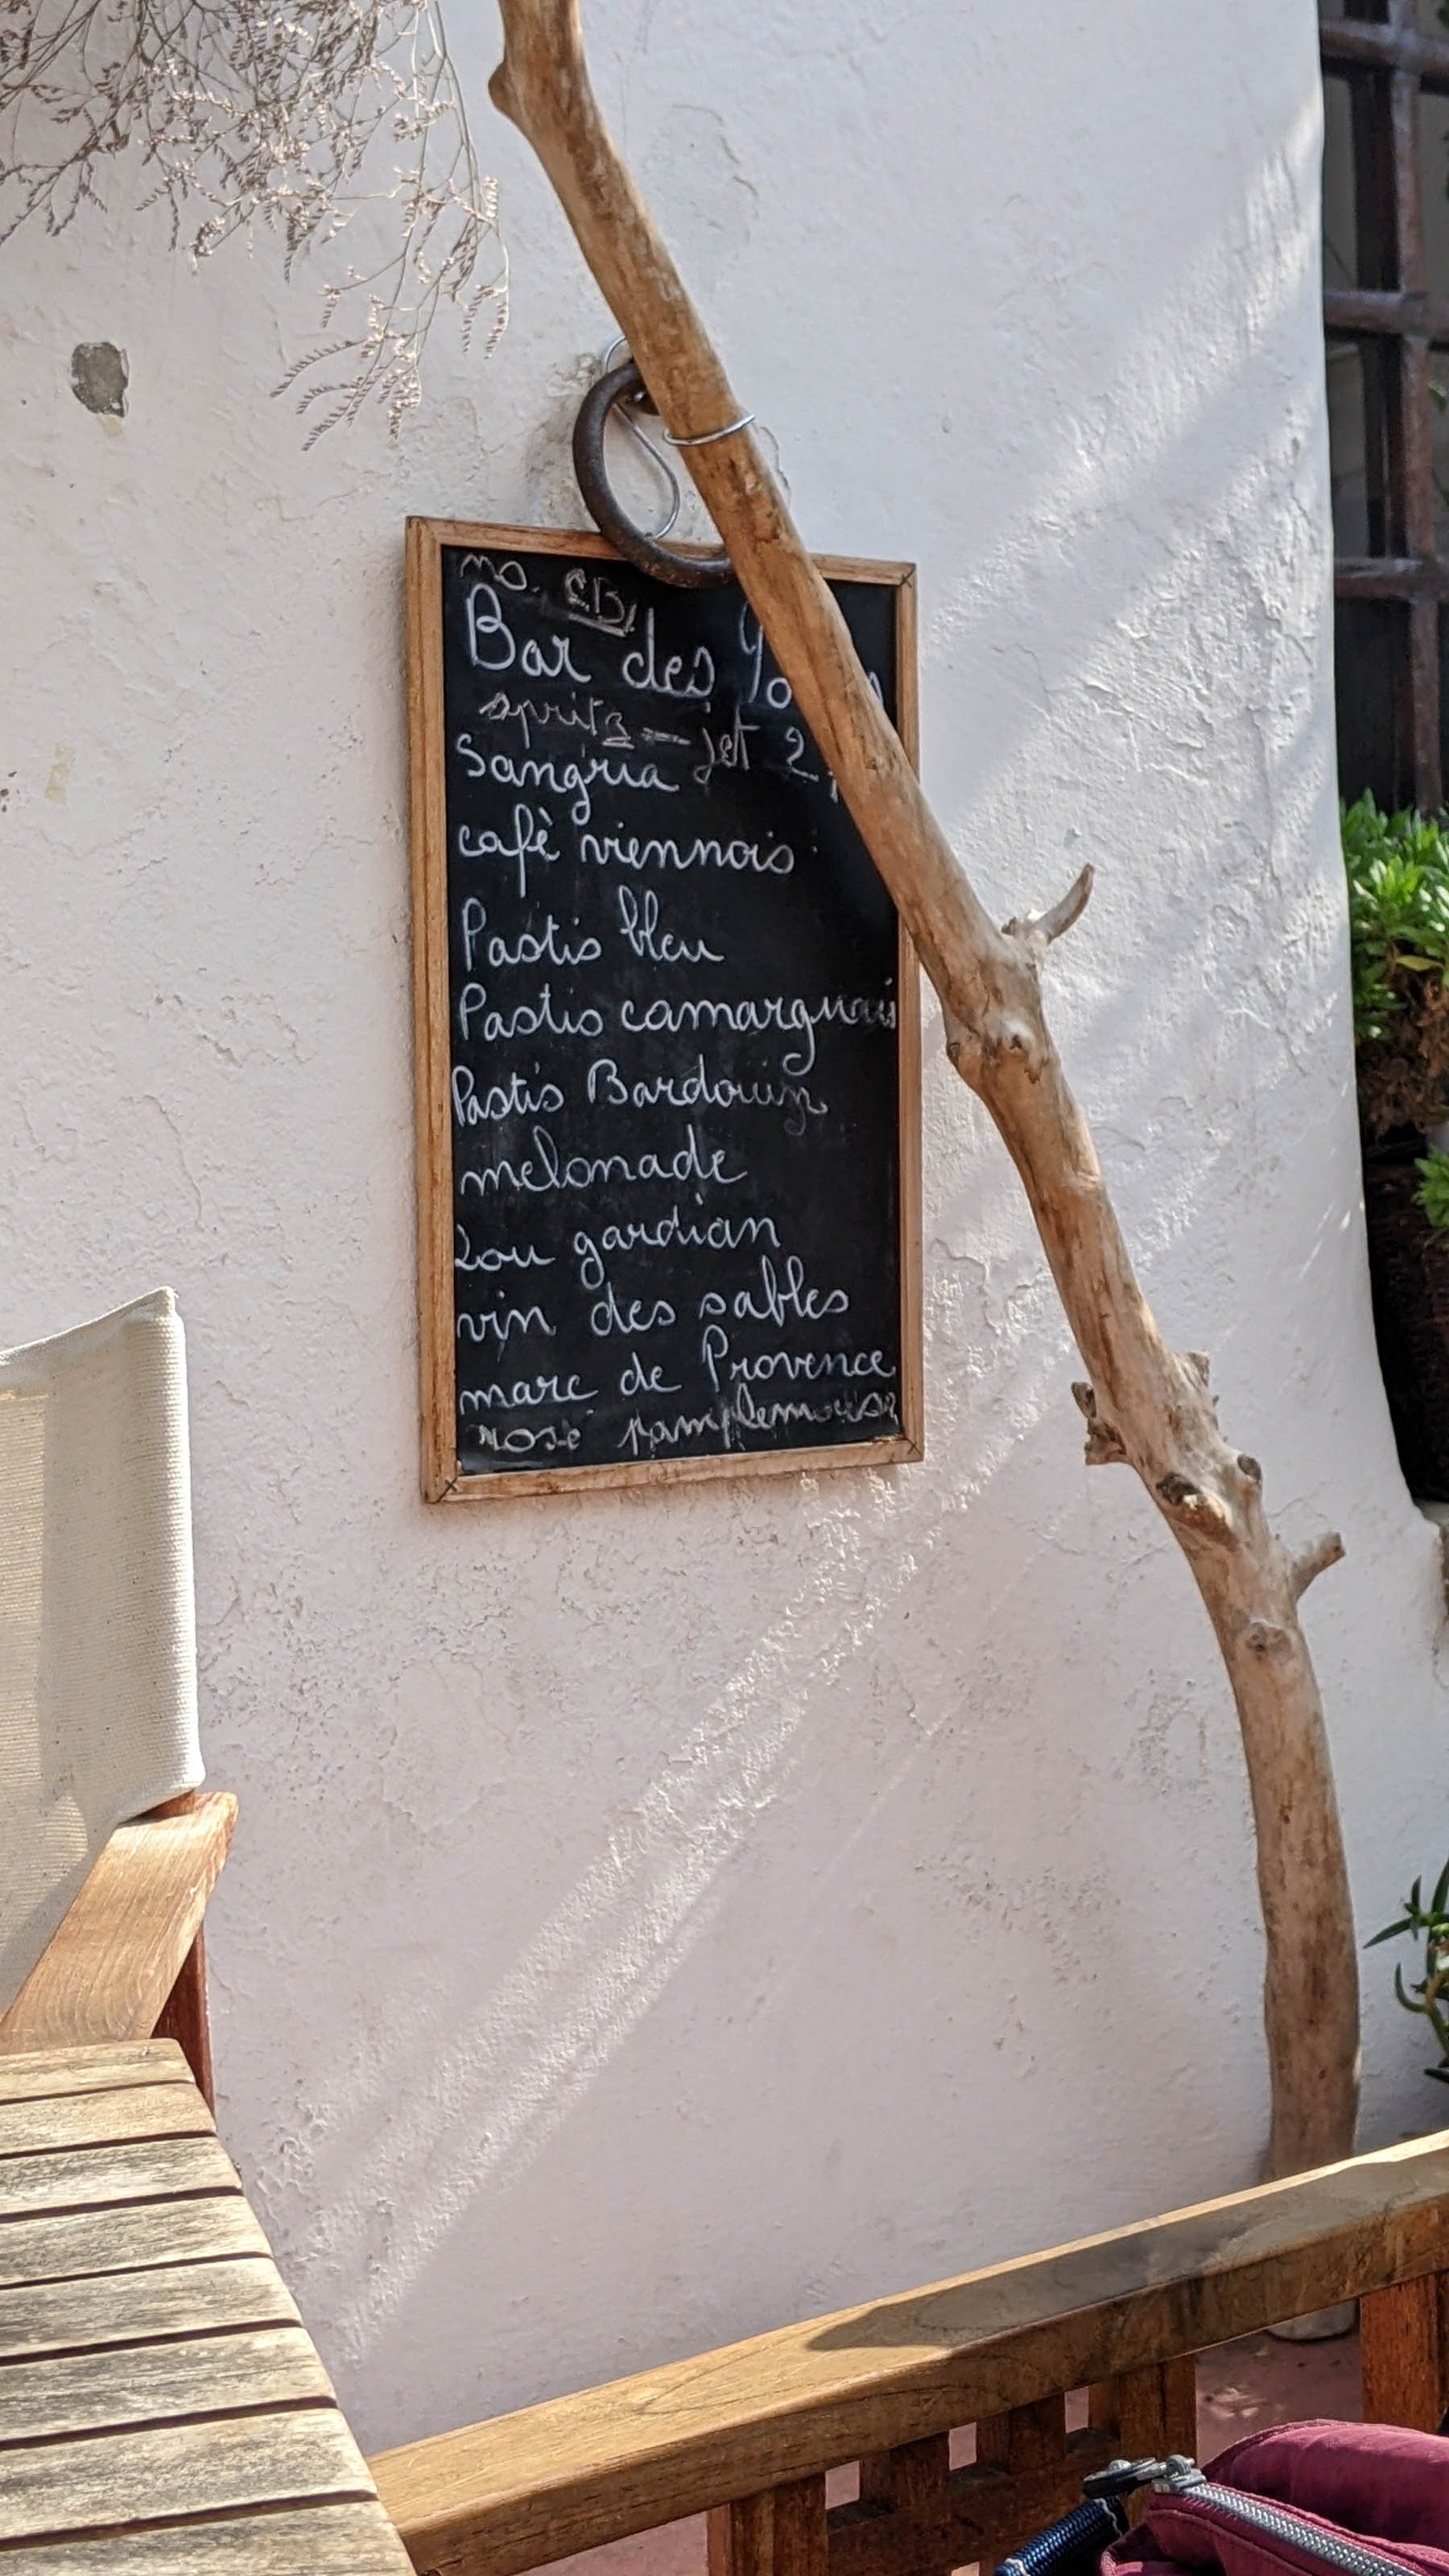 no. CB/
Bar des
spritz - jet 2
Sangria
cafè viennois
Pastis bleu
Pastis camarguais
Pastis Bardouin
melonade
Lou gardian
vin des sables
marc de Provence
rosé pamplemousse